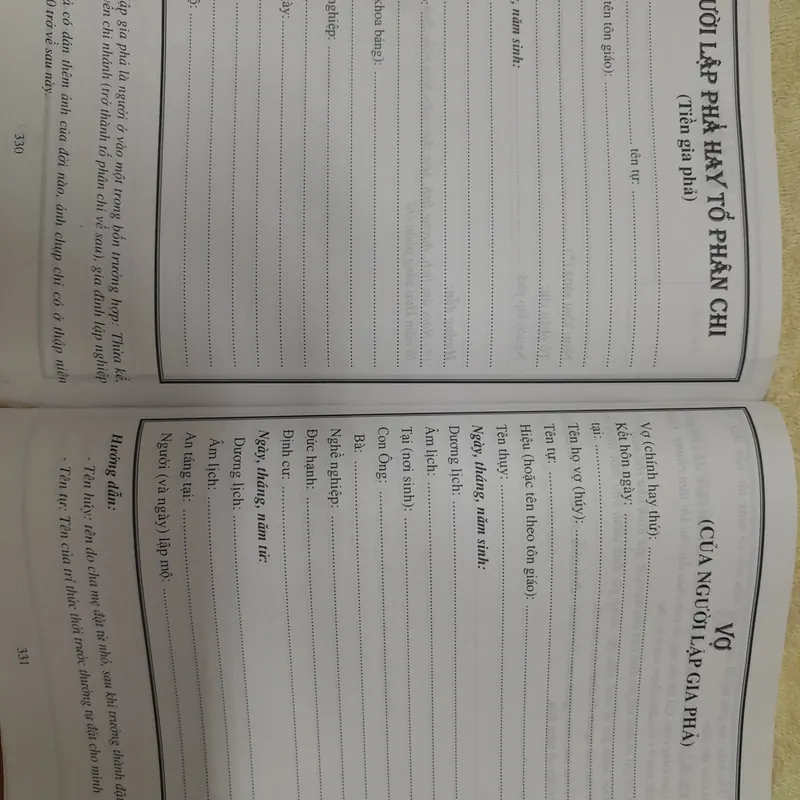 ƯỜI LẬP PHẢ HAY TỔ PHÂN CHI
(Tiền gia phả)
tên tự:
tên tôn giáo):
, năm sinh:
khoa bảng):
nghiệp:
ày:
ộ
ập gia phả là người ở vào một trong bốn trường hợp: Thừa kế,
ên chi nhánh (trở thành tổ phân chi về sau), gia đình lập nghiệp
à có dán thêm ảnh của đời nào, ảnh chụp chỉ có ở thập niên
0 trở về sau này.
330
VỢ
(CỦA NGƯỜI LẬP GIA PHẢ)
Vợ (chính hay thứ):
Kết hôn ngày:
tại:
Tên họ vợ (húy):
Tên tự:
Hiệu (hoặc tên theo tôn giáo):
Tên thụy:
Ngày, tháng, năm sinh:
Dương lịch:
Âm lịch:
Tại (nơi sinh):
Con Ông:
Bà:
Nghề nghiệp:
Đức hạnh:
Định cư:
Ngày, tháng, năm tử:
Dương lịch:
Âm lịch:
An táng tại:
Người (và ngày) lập mộ:
Hướng dẫn:
- Tên húy: tên do cha mẹ đặt từ nhỏ, sau khi trưởng thành đặ
- Tên tự: Tên của trí thức thời trước thường tự đặt cho mình
331